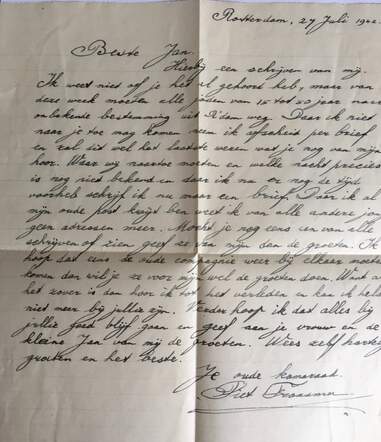 Rotterdam, 27 Juli 1942
Beste Jan.
Hierbij een schrijven van mij.
Ik weet niet of je het al gehoord heb, maar van
deze week moeten alle joden van 15 tot 50 jaar naar
onbekende bestemming uit R'dam weg. Daar ik niet
naar je toe mag komen neem ik afscheid per brief
en zal dit wel het laatste weren wat je nog van mijn
hoor. Waar wij naartoe moeten en welke nacht precies
is nog niet bekend en daar ik nu er nog de tijd
voorheb schrijf ik nu maar een brief. Daar ik al
mijn oude post kwijt ben weet ik van alle andere jon
geen adressen meer. Mocht je nog eens een van alle
schrijven of zien geef ze van mijn dan de groeten. Ik
hoop dat eens de oude compagnie weer bij elkaar moeten
komen dan wil je ze voor mij wel de groeten doen. Want a
het zover is dan hoor ik tot het verleden en kan ik hela
niet meer bij jullie zijn. Verder hoop ik dat alles bij
jullie goed blijf gaan en geef aan je vrouw en de
kleine Jan van mij de groeten. Wees zelf hartel
groeten en het beste.
Je oude kameraad.
Piet